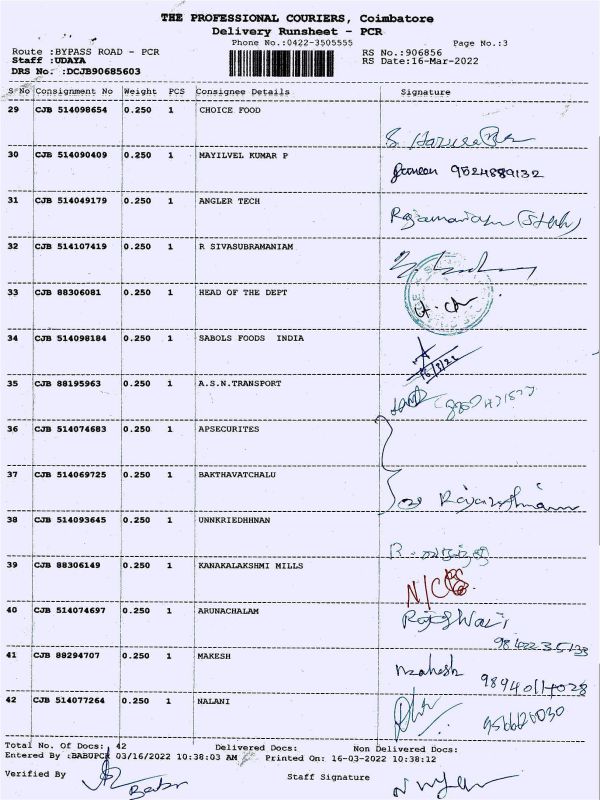 THE PROFESSIONAL COURIERS, Coimbatore
Delivery Runsheet - PCR
Phone No.:0422-3505555 Page No.:3
Route :BYPASS ROAD - PCR RS No.:906856
Staff :UDAYA RS Date:16-Mar-2022
DRS No. :DCJB90685603
S No Consignment No Weight PCS Consignee Details Signature
29 CJB 514098654 0.250 1 CHOICE FOOD
30 CJB 514090409 0.250 1 MAYILVEL KUMAR P
9524889132
31 CJB 514049179 0.250 1 ANGLER TECH
32 CJB 514107419 0.250 1 R SIVASUBRAMANIAM
33 CJB 88306081 0.250 1 HEAD OF THE DEPT
34 CJB 514098184 0.250 1 SABOLS FOODS INDIA
16/3/22
35 CJB 88195963 0.250 1 A.S.N.TRANSPORT
36 CJB 514074683 0.250 1 APSECURITES
37 CJB 514069725 0.250 1 BAKTHAVATCHALU
38 CJB 514093645 0.250 1 UNNKRIEDHHNAN
39 CJB 88306149 0.250 1 KANAKALAKSHMI MILLS
40 CJB 514074697 0.250 1 ARUNACHALAM
Rajeshwari
41 CJB 88294707 0.250 1 MAKESH
Mahesh 9894014028
42 CJB 514077264 0.250 1 NALANI
Total No. Of Docs: 42 Delivered Docs: Non Delivered Docs:
Entered By :BABUPCR 03/16/2022 10:38:03 AM Printed On: 16-03-2022 10:38:12
Verified By Babu Staff Signature